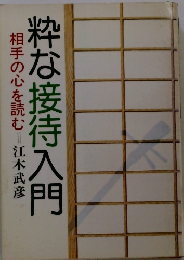 粋な接待入門
相手の心を読む
江木武彦